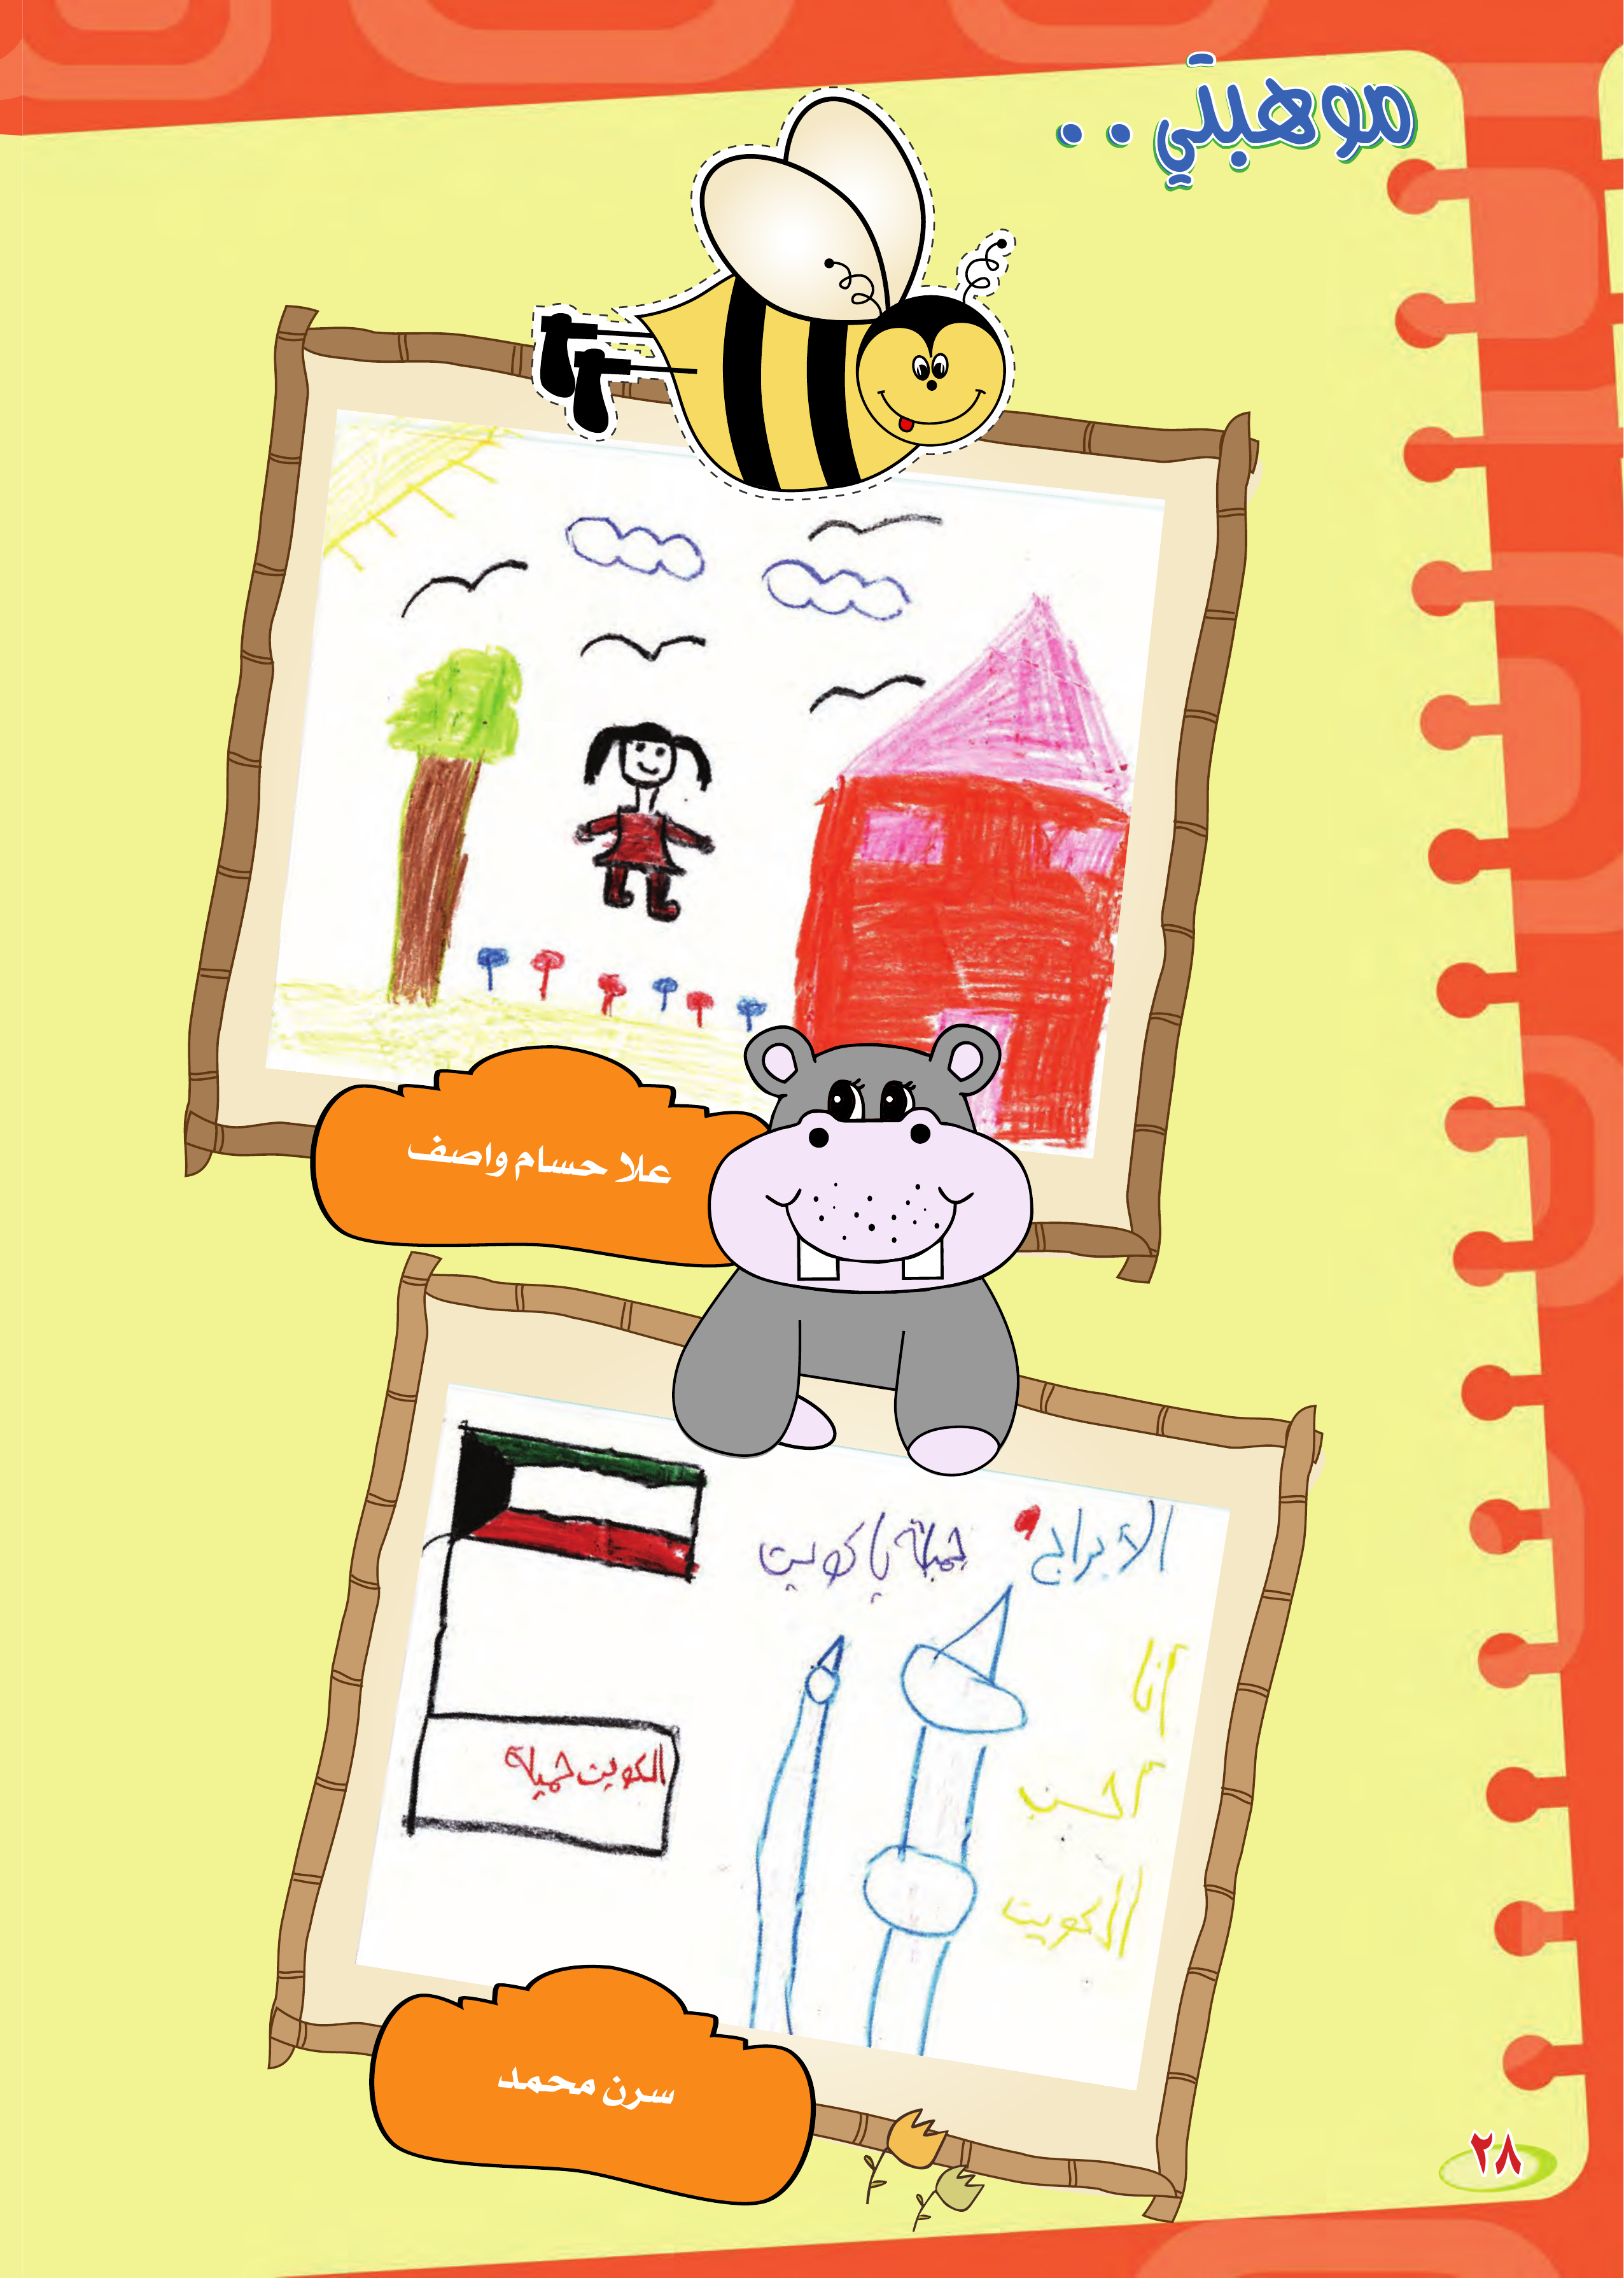 موهبتي..
علا حسام واصف
الأبراج
جميلة يا كويت
أنا
أحب
الكويت
الكويت جميلة
سرن محمد
٢٨